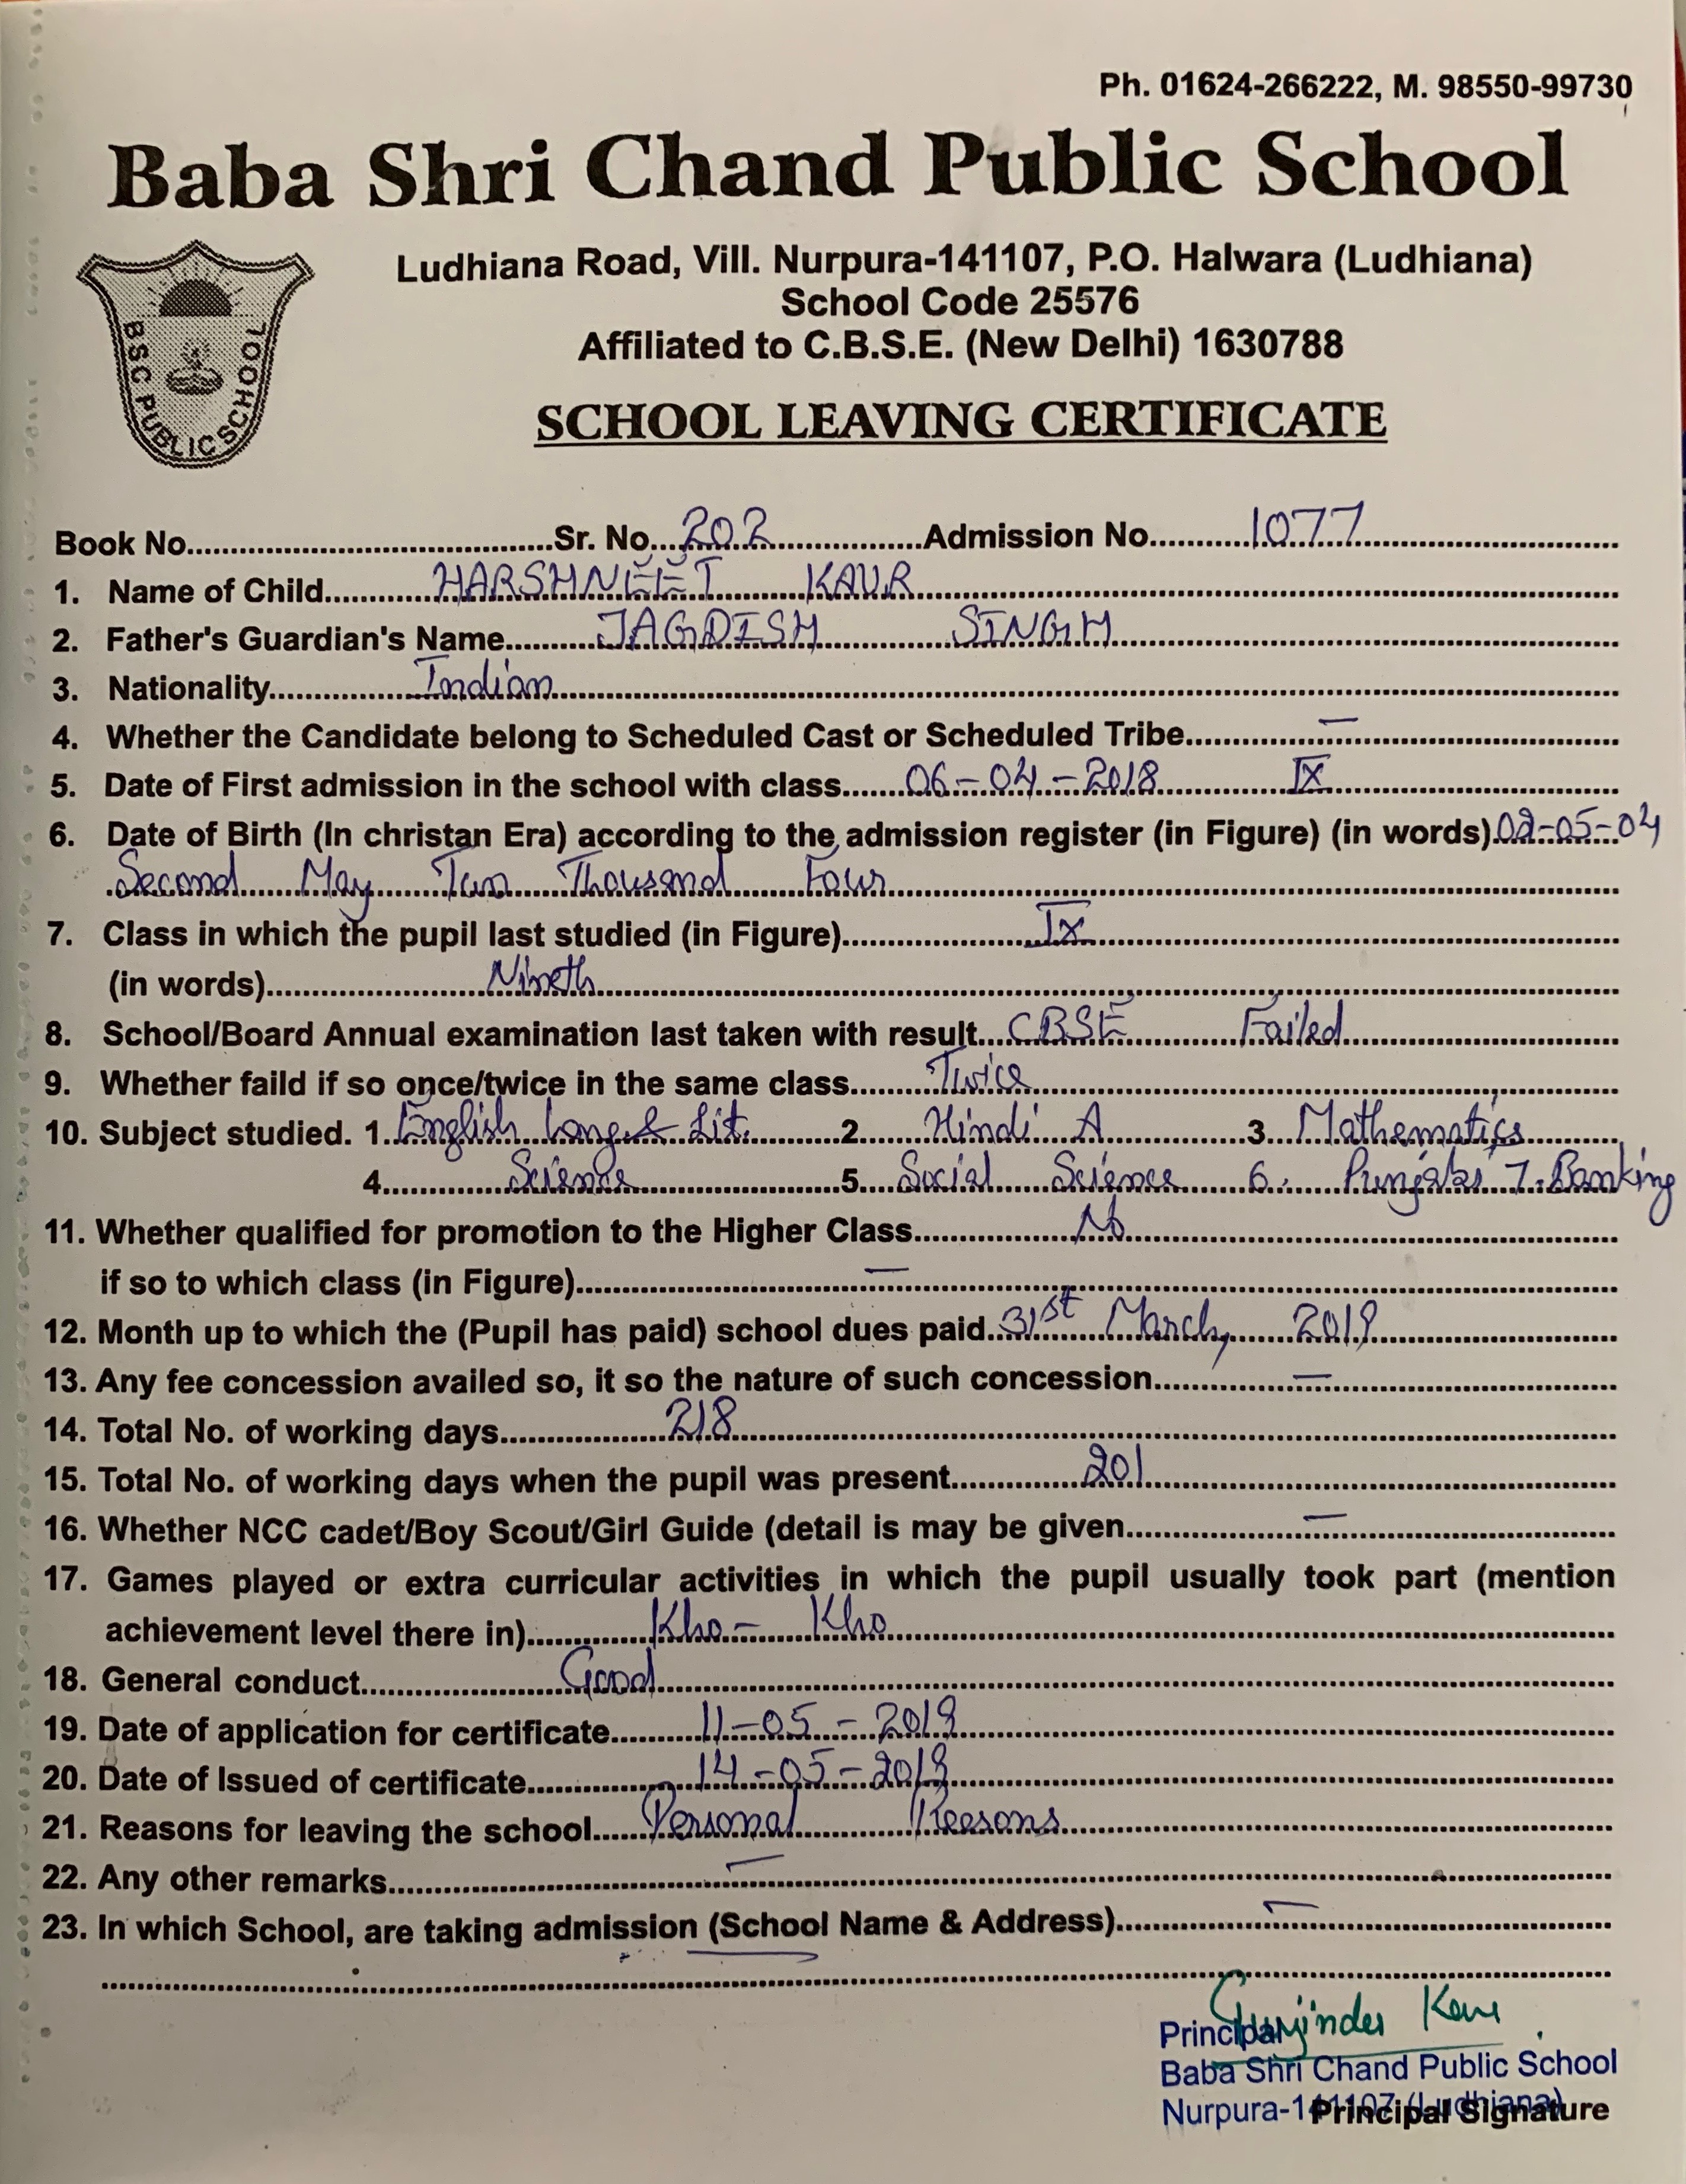 Ph. 01624-266222, M. 98550-99730
Baba Shri Chand Public School
BSC PUBLIC SCHOOL
Ludhiana Road, Vill. Nurpura-141107, P.O. Halwara (Ludhiana)
School Code 25576
Affiliated to C.B.S.E. (New Delhi) 1630788
SCHOOL LEAVING CERTIFICATE
Book No. Sr. No. 202 Admission No. 1077
1. Name of Child HARSHNEET KAUR
2. Father's Guardian's Name JAGDISH SINGH
3. Nationality Indian
4. Whether the Candidate belong to Scheduled Cast or Scheduled Tribe —
5. Date of First admission in the school with class 06-04-2018 IX
6. Date of Birth (In christan Era) according to the admission register (in Figure) (in words) 02-05-04
Second May Two Thousand Four
7. Class in which the pupil last studied (in Figure) IX
(in words) Nineth
8. School/Board Annual examination last taken with result CBSE Failed
9. Whether faild if so once/twice in the same class Twice
10. Subject studied. 1. English Lang. & Lit. 2. Hindi A 3. Mathematics
4. Science 5. Social Science 6. Punjabi 7. Banking
11. Whether qualified for promotion to the Higher Class No
if so to which class (in Figure) —
12. Month up to which the (Pupil has paid) school dues paid 31st March, 2019
13. Any fee concession availed so, it so the nature of such concession —
14. Total No. of working days 218
15. Total No. of working days when the pupil was present 201
16. Whether NCC cadet/Boy Scout/Girl Guide (detail is may be given —
17. Games played or extra curricular activities in which the pupil usually took part (mention
achievement level there in) Kho-Kho
18. General conduct Good
19. Date of application for certificate 11-05-2019
20. Date of Issued of certificate 14-05-2019
21. Reasons for leaving the school Personal Reesons
22. Any other remarks —
23. In which School, are taking admission (School Name & Address) —
Gurjinder Kaur
Principal
Baba Shri Chand Public School
Nurpura-141107 (Ludhiana)
Principal Signature